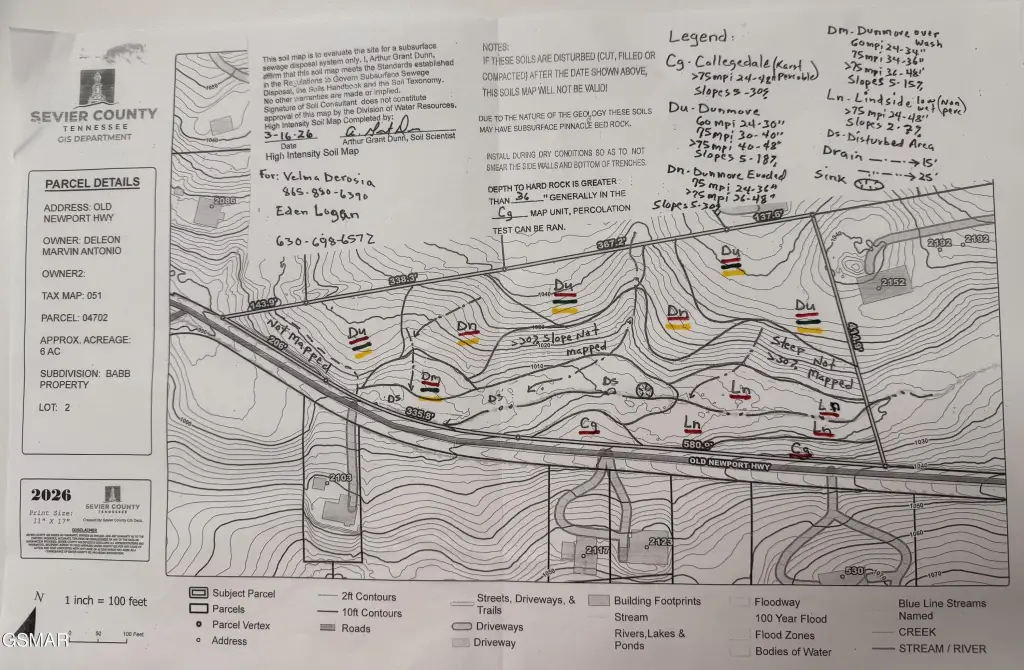 SEVIER COUNTY
TENNESSEE
GIS DEPARTMENT
PARCEL DETAILS
ADDRESS: OLD
NEWPORT HWY
OWNER: DELEON
MARVIN ANTONIO
OWNER2:
TAX MAP: 051
PARCEL: 04702
APPROX. ACREAGE:
6 AC
SUBDIVISION: BABB
PROPERTY
LOT: 2
2026
Print Size:
11" X 17"
SEVIER COUNTY
TENNESSEE
DISCLAIMER
This soil map is to evaluate the site for a subsurface
sewage disposal system only. I, Arthur Grant Dunn,
affirm that this soil map meets the Standards established
in the Regulations to Govern Subsurface Sewage
Disposal, the Soils Handbook and the Soil Taxonomy.
No other warranties are made or implied.
Signature of Soil Consultant does not constitute
approval of this map by the Division of Water Resources.
High Intensity Soil Map Completed by:
3-16-26
Date
Arthur Grant Dunn, Soil Scientist
High Intensity Soil Map
For: Velma Derosia
865-830-6390
Eden Logan
630-698-6572
NOTES:
IF THESE SOILS ARE DISTURBED (CUT, FILLED OR
COMPACTED) AFTER THE DATE SHOWN ABOVE,
THIS SOILS MAP WILL NOT BE VALID!
DUE TO THE NATURE OF THE GEOLOGY THESE SOILS
MAY HAVE SUBSURFACE PINNACLE BED ROCK.
INSTALL DURING DRY CONDITIONS SO AS TO NOT
SMEAR THE SIDE WALLS AND BOTTOM OF TRENCHES.
DEPTH TO HARD ROCK IS GREATER
THAN 36 " GENERALLY IN THE
Cg MAP UNIT, PERCOLATION
TEST CAN BE RAN.
Legend:
Cg-Collegedale (Karst
>75mpi 24-48" Percable)
Slopes 5-30%
Du-Dunmore
60mpi 24-30"
75mpi 30-40"
>75mpi 40-48"
Slopes 5-18%
Dn-Dunmore Eroded
75mpi 24-36"
>75mpi 36-48"
Slopes 5-30%
Dm-Dunmore over
Wash
60mpi 24-34"
75mpi 34-36"
>75mpi 36-48"
Slopes 5-15%
Ln-Lindside low (Non
wet perc)
>75mpi 24-48"
Slopes 2-7%
Ds-Disturbed Area
Drain 15'
25'
Sink
2086
143.9'
338.3'
367.2'
137.6'
2192
2192
2152
Not Mapped
Du
Dn
Du
Dn
Du
Du
>30% Slope Not
mapped
Steep Not
>30% Mapped
Dm
Ds
Ds
Ds
Ln
Ln
Ln
Cg
Cg
335.8'
580.9'
OLD NEWPORT HWY
1040
1020
1010
1030
1040
1050
1060
1070
2103
2117
2123
530
N
1 inch = 100 feet
0 50 100 Feet
Subject Parcel
Parcels
Parcel Vertex
Address
2ft Contours
10ft Contours
Roads
Streets, Driveways, &
Trails
Driveways
Driveway
Building Footprints
Stream
Rivers,Lakes &
Ponds
Floodway
100 Year Flood
Flood Zones
Bodies of Water
Blue Line Streams
Named
CREEK
STREAM / RIVER
GSMAR